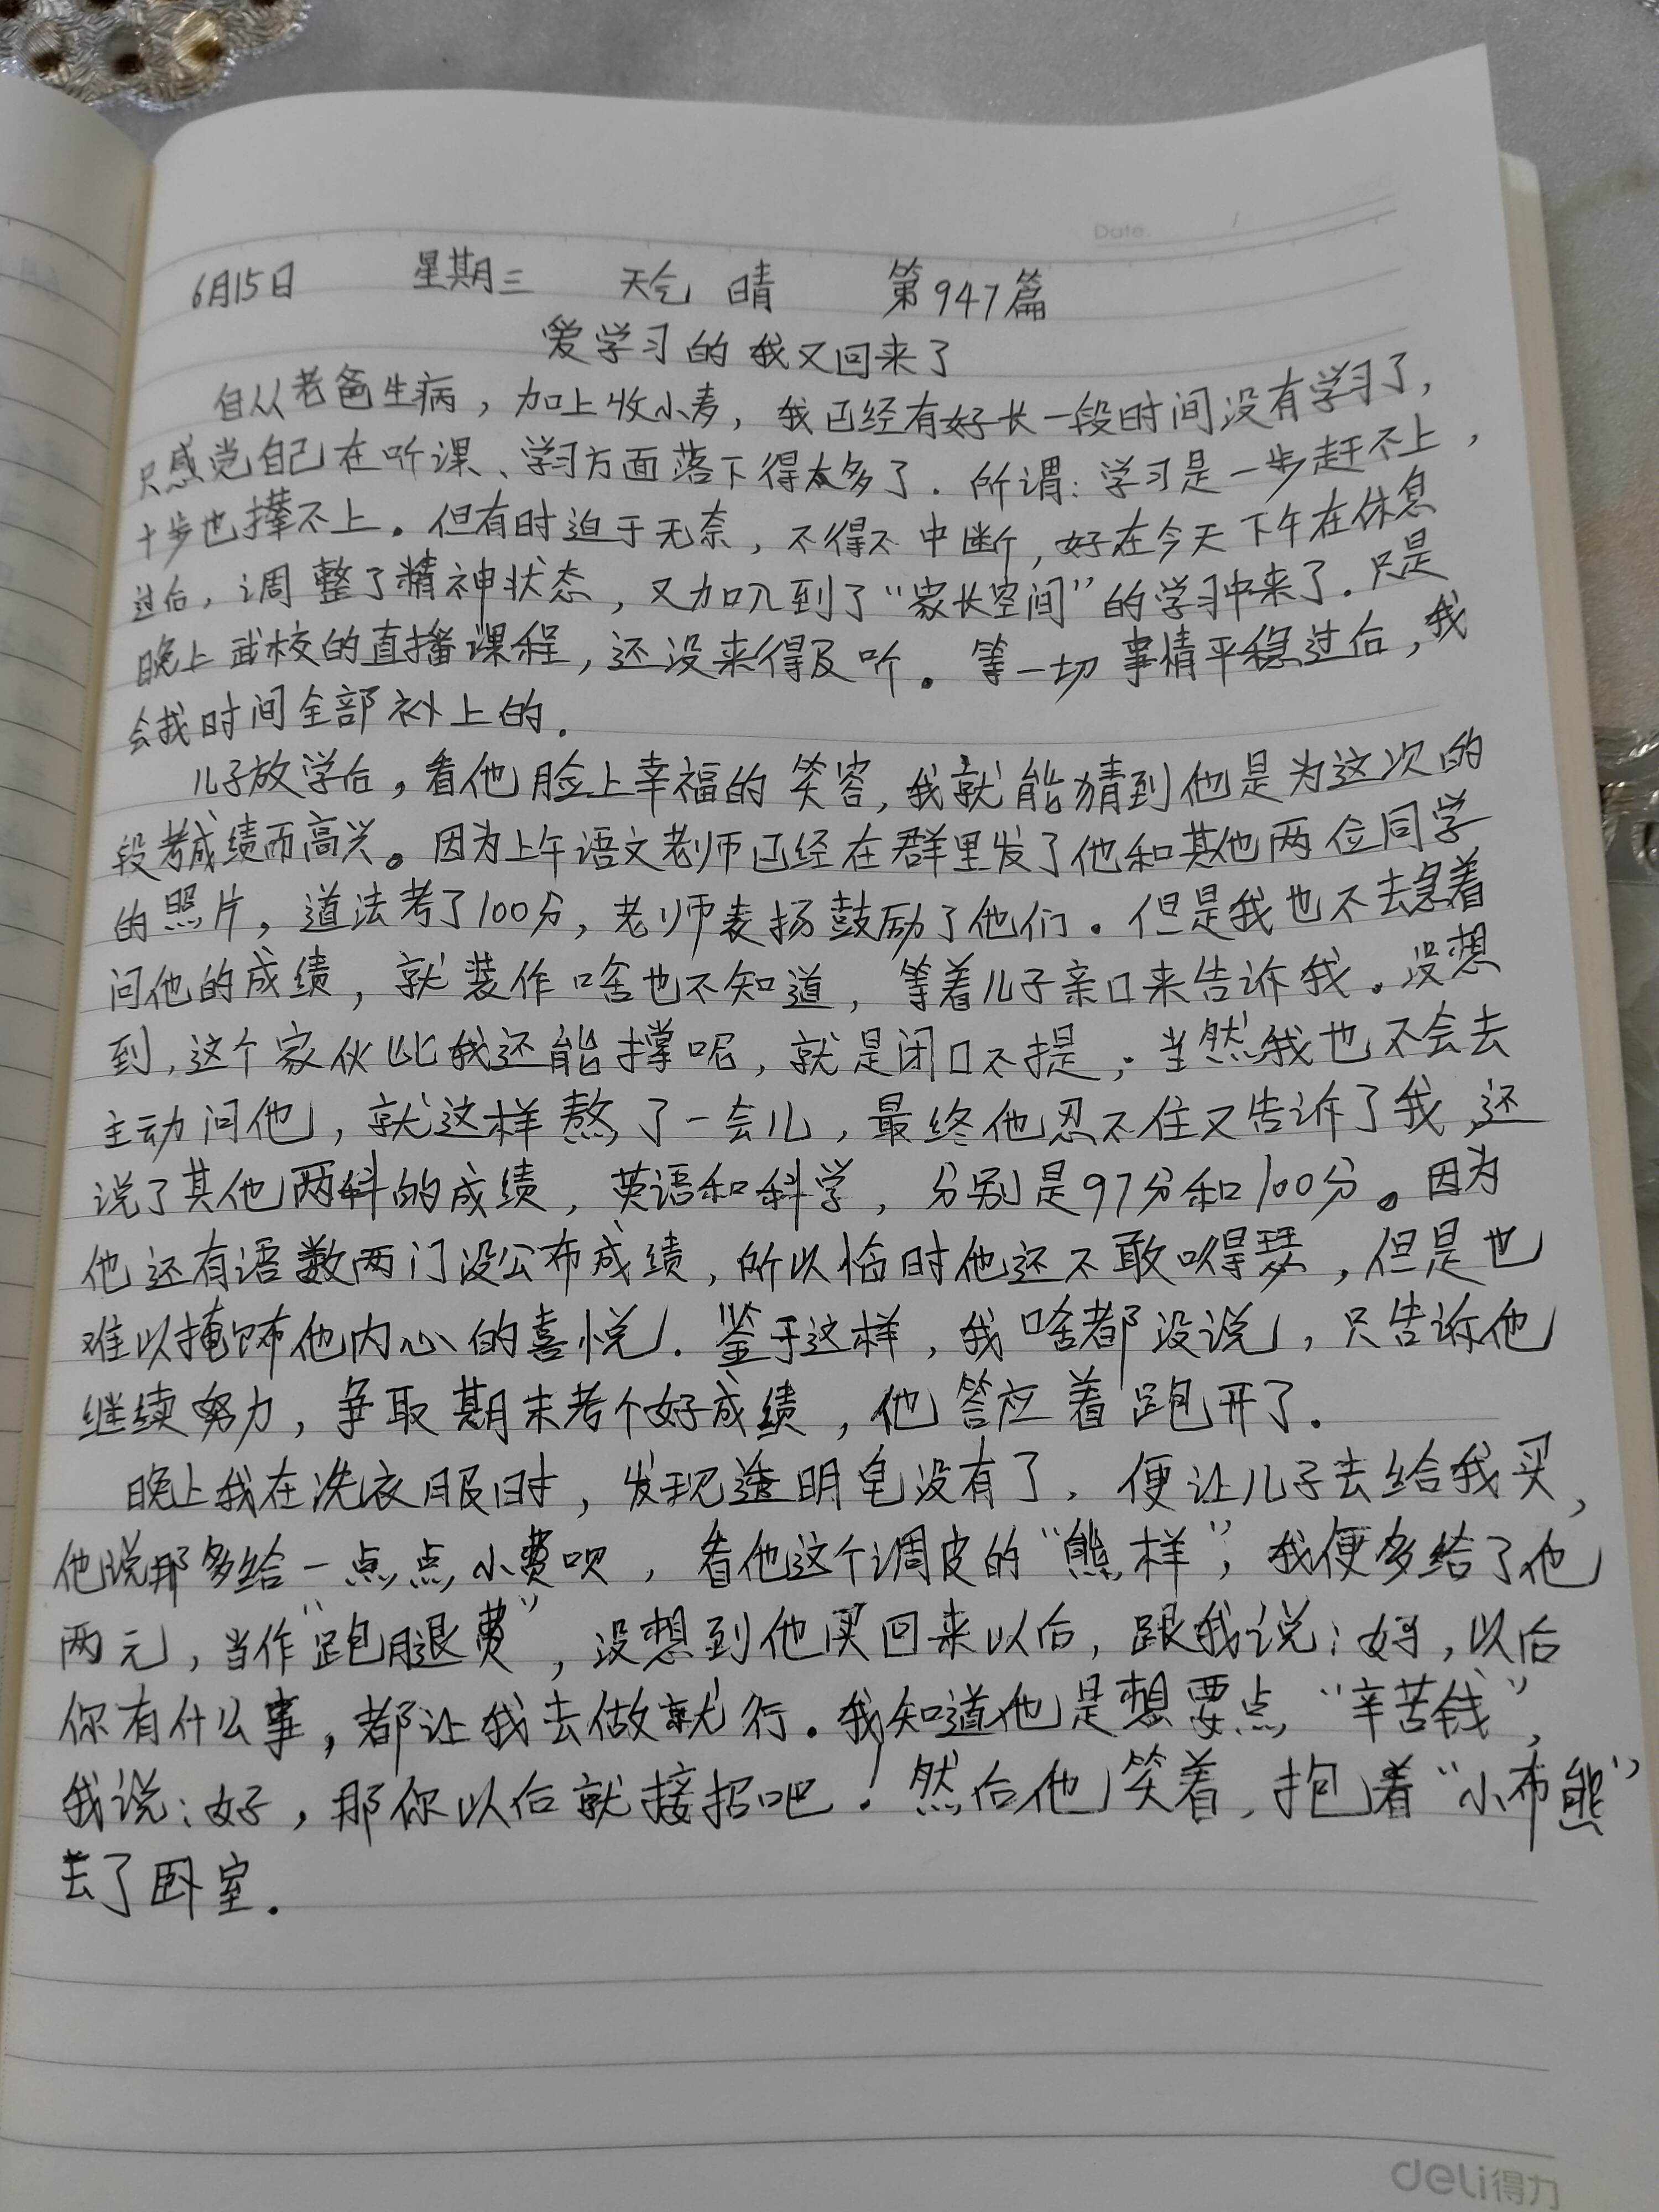 Date.
6月15日 星期三 天气 晴 第947篇
爱学习的我又回来了
自从老爸生病，加上收小麦，我已经有好长一段时间没有学习了，
只感觉自己在听课、学习方面落下得太多了．所谓：学习是一步赶不上，
十步也撵不上。但有时迫于无奈，不得不中断，好在今天下午在休息
过后，调整了精神状态，又加入到了“家长空间”的学习中来了．只是
晚上武校的直播课程，还没来得及听。等一切事情平稳过后，我
会找时间全部补上的．
儿子放学后，看他脸上幸福的笑容，我就能猜到他是为这次的
段考成绩而高兴。因为上午语文老师已经在群里发了他和其他两位同学
的照片，道法考了100分，老师表扬鼓励了他们．但是我也不去急着
问他的成绩，就装作啥也不知道，等着儿子亲口来告诉我．没想
到，这个家伙比我还能撑呢，就是闭口不提，当然我也不会去
主动问他，就这样熬了一会儿，最终他忍不住又告诉了我，还
说了其他两科的成绩，英语和科学，分别是97分和100分。因为
他还有语数两门没公布成绩，所以临时他还不敢嘚瑟，但是也
难以掩饰他内心的喜悦．鉴于这样，我啥都没说，只告诉他
继续努力，争取期末考个好成绩，他答应着跑开了．
晚上我在洗衣服时，发现透明皂没有了，便让儿子去给我买，
他说那多给一点点小费呗，看他这个调皮的“熊样”，我便多给了他
两元，当作“跑腿费”，没想到他买回来以后，跟我说：妈，以后
你有什么事，都让我去做就行．我知道他是想要点“辛苦钱”，
我说：好，那你以后就接招吧！然后他笑着，抱着“小布熊”
去了卧室．
deli得力